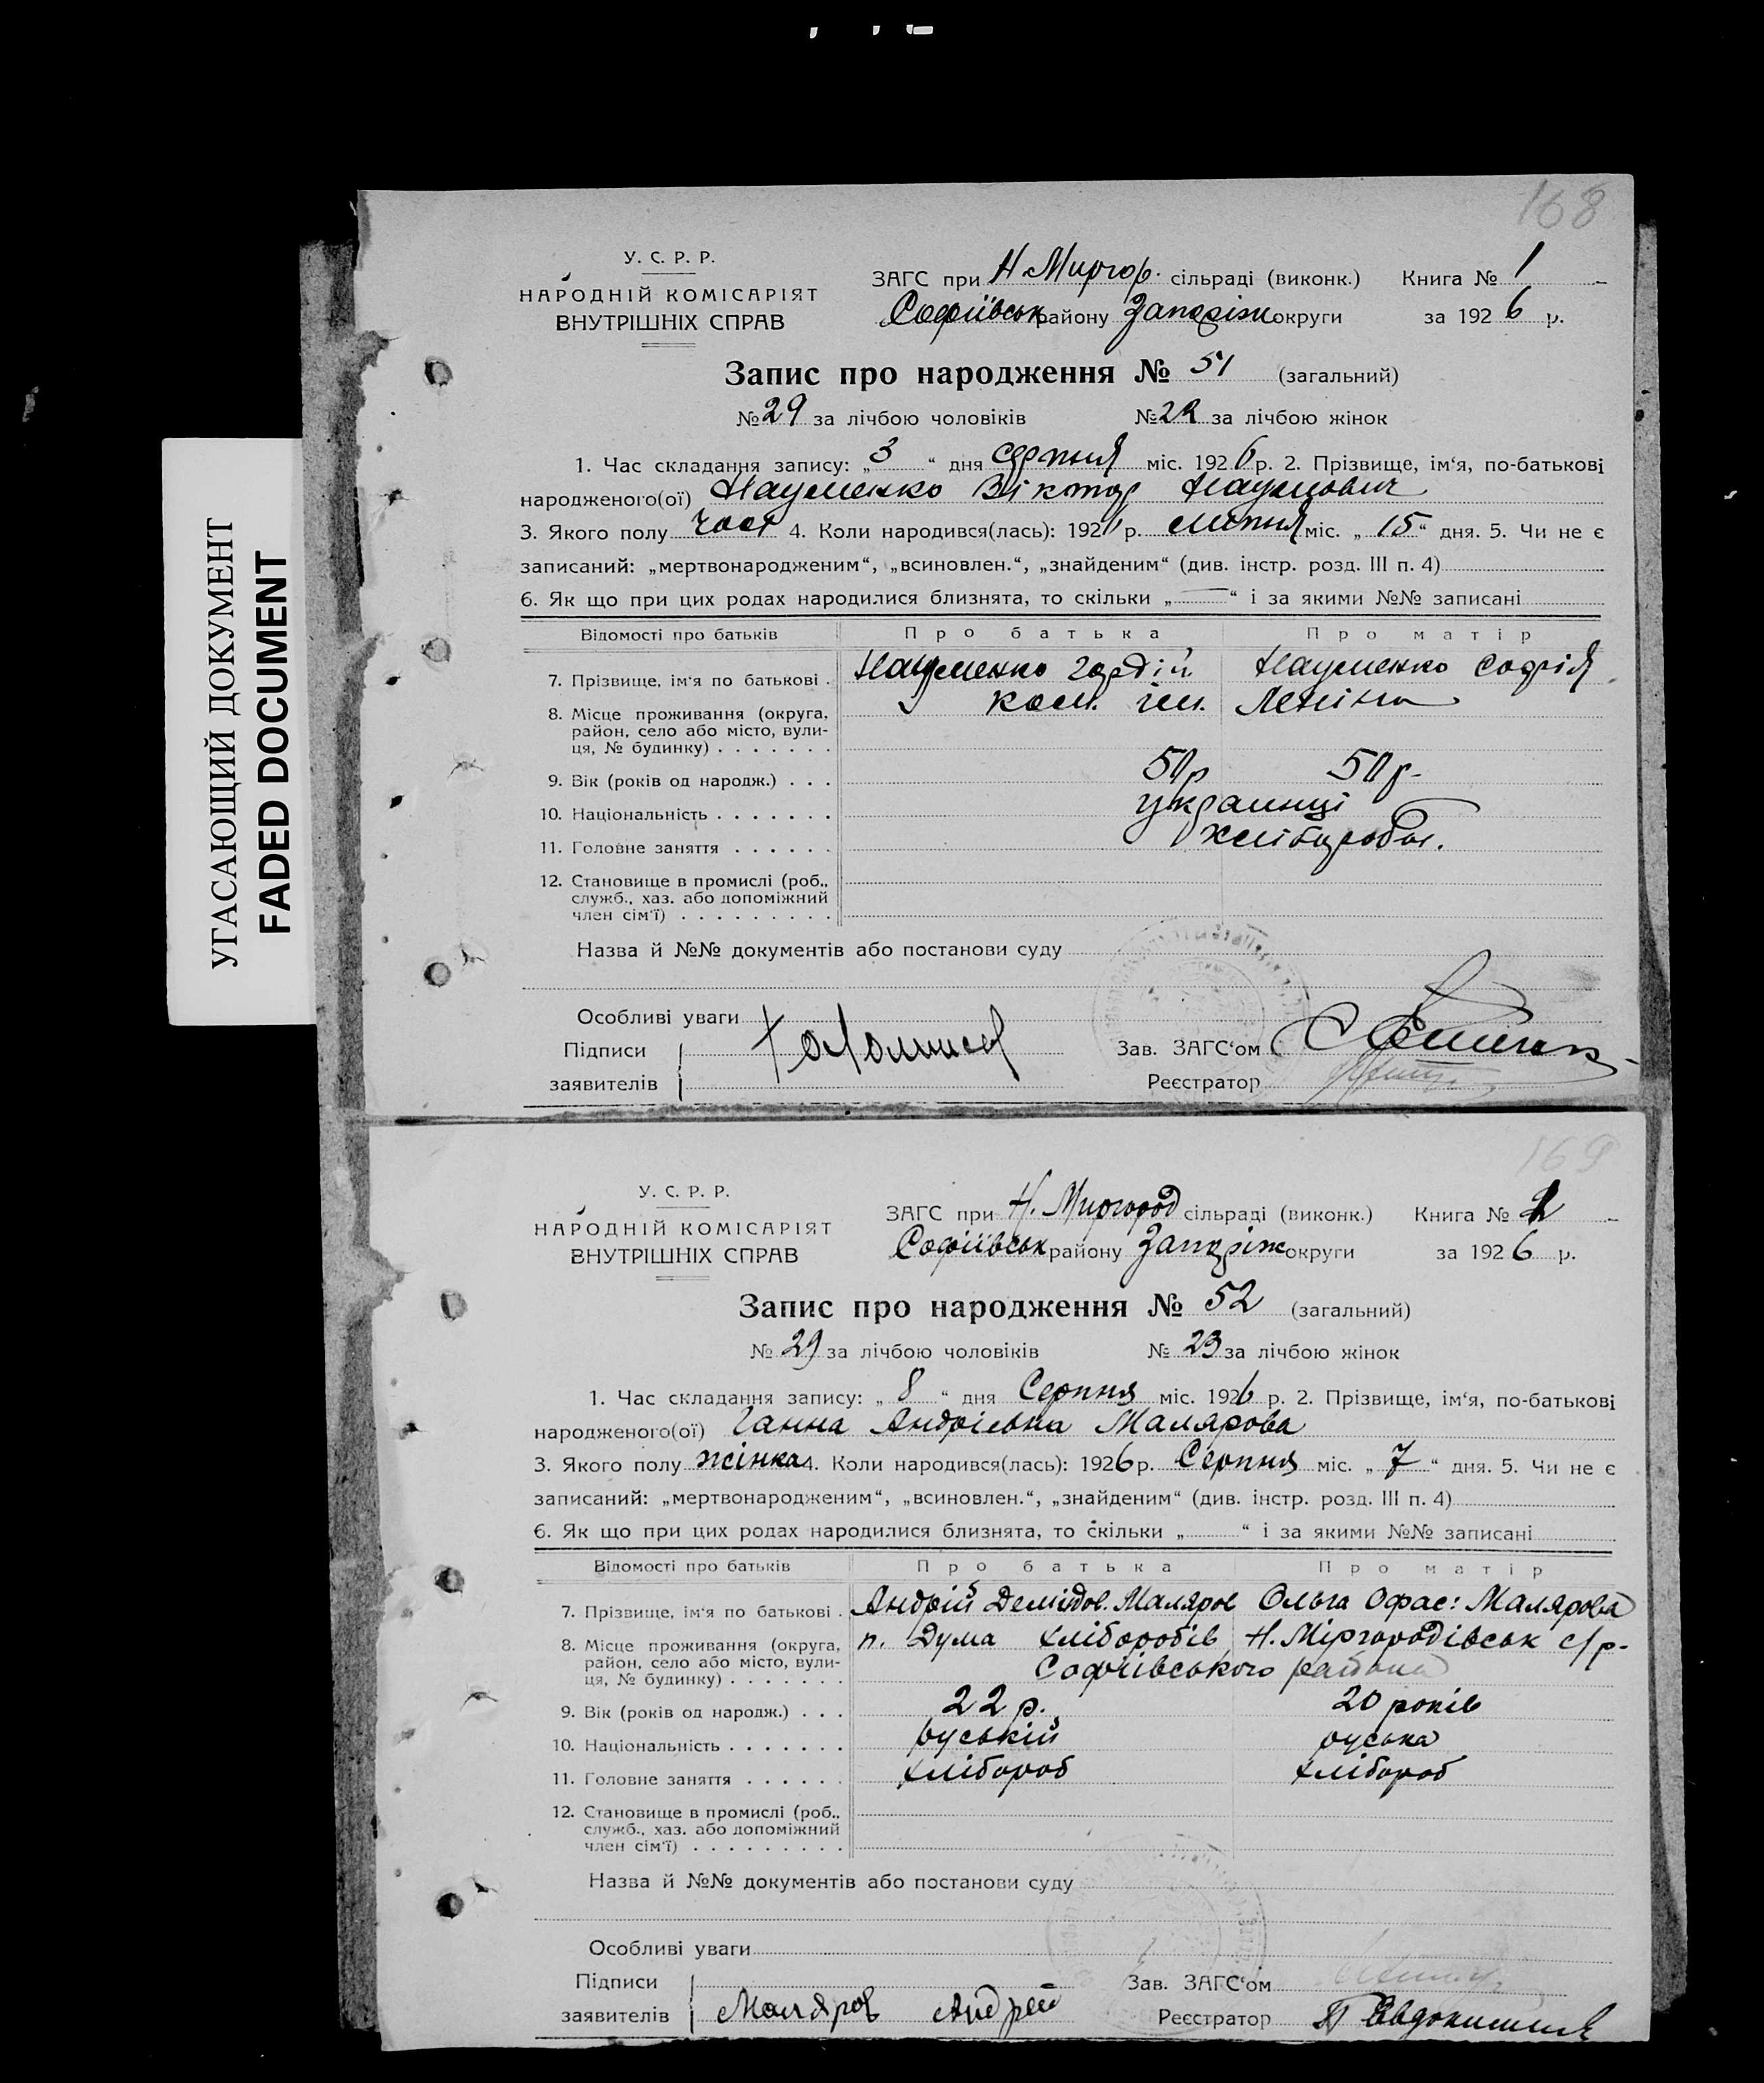 168
УГАСАЮЩИЙ ДОКУМЕНТ
FADED DOCUMENT
У. С. Р. Р.
НАРОДНІЙ КОМІСАРІЯТ
ВНУТРІШНІХ СПРАВ
ЗАГС при Н Миргор. сільраді (виконк.) Книга № 1
Софіївськ району Запоріж округи за 1926 р.
Запис про народження № 51 (загальний)
№ 29 за лічбою чоловіків № 22 за лічбою жінок
1. Час складання запису: „3“ дня серпня міс. 1926 р. 2. Прізвище, ім‘я, по-батькові
народженого(ої) Науменко Віктор Наумович
3. Якого полу 4. Коли народився(лась): 192 р. липня міс. „15“ дня. 5. Чи не є
записаний: „мертвонародженим“, „всиновлен.“, „знайденим“ (див. інстр. розд. III п. 4)
6. Як що при цих родах народилися близнята, то скільки „—“ і за якими №№ записані
Відомості про батьків Про батька Про матір
7. Прізвище, ім‘я по батькові . Науменко Гордій Науменко Софія
8. Місце проживання (округа, ком. ім. Леніна
район, село або місто, вули-
ця, № будинку) . . . . . . .
9. Вік (років од народж.) . . . 50р 50р-
10. Національність . . . . . . . українці
11. Головне заняття . . . . . . хлібороби.
12. Становище в промислі (роб.,
служб., хаз. або допоміжний
член сім‘ї) . . . . . . . . .
Назва й №№ документів або постанови суду
Особливі уваги
Підписи Зав. ЗАГС‘ом
заявителів Реєстратор
169
У. С. Р. Р.
НАРОДНІЙ КОМІСАРІЯТ
ВНУТРІШНІХ СПРАВ
ЗАГС при Н. Миргород сільраді (виконк.) Книга № 2
Софіївськ району Запоріж округи за 1926 р.
Запис про народження № 52 (загальний)
№ 29 за лічбою чоловіків № 23 за лічбою жінок
1. Час складання запису: „8“ дня Серпня міс. 1926 р. 2. Прізвище, ім‘я, по-батькові
народженого(ої) Ганна Андрієвна Малярова
3. Якого полу жінка 4. Коли народився(лась): 1926 р. Серпня міс. „7“ дня. 5. Чи не є
записаний: „мертвонародженим“, „всиновлен.“, „знайденим“ (див. інстр. розд. III п. 4)
6. Як що при цих родах народилися близнята, то скільки „ “ і за якими №№ записані
Відомості про батьків Про батька Про матір
7. Прізвище, ім‘я по батькові . Андрій Демідов. Маляров Ольга Офас: Малярова
8. Місце проживання (округа, п. Дума Хліборобів Н. Міргородівськ с/р-
район, село або місто, вули- Софіївського района
ця, № будинку) . . . . . . .
9. Вік (років од народж.) . . . 22 р. 20 років
10. Національність . . . . . . . руській руська
11. Головне заняття . . . . . . хлібороб хлібороб
12. Становище в промислі (роб.,
служб., хаз. або допоміжний
член сім‘ї) . . . . . . . . .
Назва й №№ документів або постанови суду
Особливі уваги
Підписи Зав. ЗАГС‘ом
заявителів Маляров Андрей Реєстратор